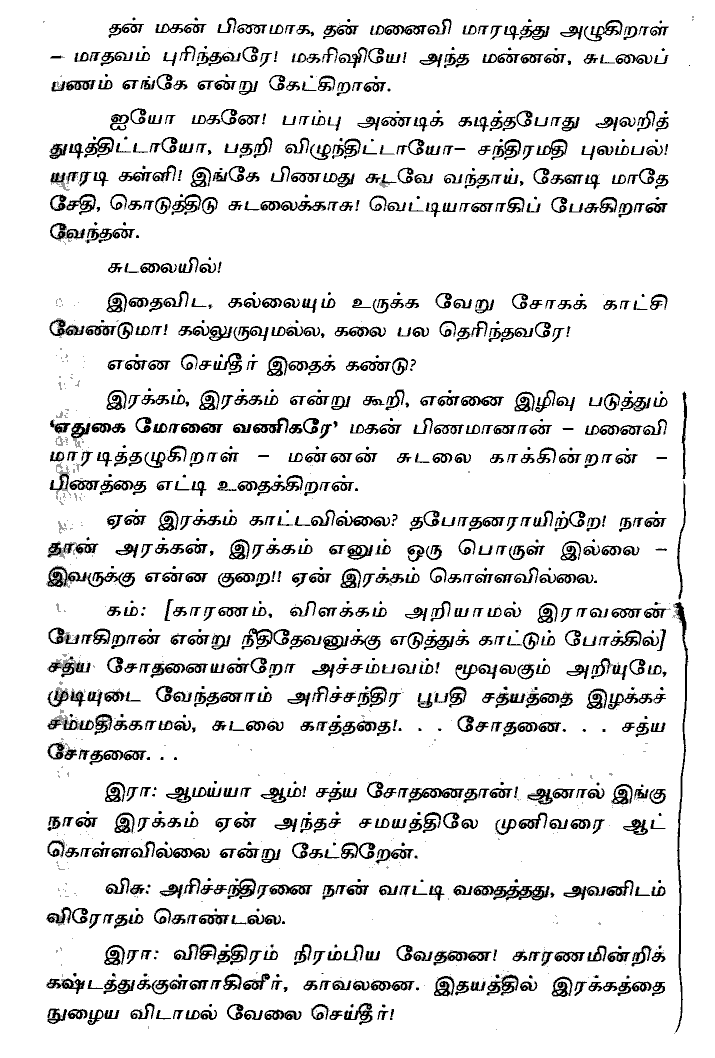 தன் மகன் பிணமாக, தன் மனைவி மாரடித்து அழுகிறாள்
– மாதவம் புரிந்தவரே! மகரிஷியே! அந்த மன்னன், சுடலைப்
பணம் எங்கே என்று கேட்கிறான்.
ஐயோ மகனே! பாம்பு அண்டிக் கடித்தபோது அலறித்
துடித்திட்டாயோ, பதறி விழுந்திட்டாயோ– சந்திரமதி புலம்பல்!
யாரடி கள்ளி! இங்கே பிணமது சுடவே வந்தாய், கேளடி மாதே
சேதி, கொடுத்திடு சுடலைக்காசு! வெட்டியானாகிப் பேசுகிறான்
வேந்தன்.
சுடலையில்!
இதைவிட, கல்லையும் உருக்க வேறு சோகக் காட்சி
வேண்டுமா! கல்லுருவுமல்ல, கலை பல தெரிந்தவரே!
என்ன செய்தீர் இதைக் கண்டு?
இரக்கம், இரக்கம் என்று கூறி, என்னை இழிவு படுத்தும்
‘எதுகை மோனை வணிகரே’ மகன் பிணமானான் – மனைவி
மாரடித்தழுகிறாள் – மன்னன் சுடலை காக்கின்றான் –
பிணத்தை எட்டி உதைக்கிறான்.
ஏன் இரக்கம் காட்டவில்லை? தபோதனராயிற்றே! நான்
தான் அரக்கன், இரக்கம் எனும் ஒரு பொருள் இல்லை –
இவருக்கு என்ன குறை!! ஏன் இரக்கம் கொள்ளவில்லை.
கம்: [காரணம், விளக்கம் அறியாமல் இராவணன்
போகிறான் என்று நீதிதேவனுக்கு எடுத்துக் காட்டும் போக்கில்]
சத்ய சோதனையன்றோ அச்சம்பவம்! மூவுலகும் அறியுமே,
முடியுடை வேந்தனாம் அரிச்சந்திர பூபதி சத்யத்தை இழக்கச்
சம்மதிக்காமல், சுடலை காத்ததை!. . . சோதனை. . . சத்ய
சோதனை. . .
இரா: ஆமய்யா ஆம்! சத்ய சோதனைதான்! ஆனால் இங்கு
நான் இரக்கம் ஏன் அந்தச் சமயத்திலே முனிவரை ஆட்
கொள்ளவில்லை என்று கேட்கிறேன்.
விசு: அரிச்சந்திரனை நான் வாட்டி வதைத்தது, அவனிடம்
விரோதம் கொண்டல்ல.
இரா: விசித்திரம் நிரம்பிய வேதனை! காரணமின்றிக்
கஷ்டத்துக்குள்ளாகினீர், காவலனை. இதயத்தில் இரக்கத்தை
நுழைய விடாமல் வேலை செய்தீர்!